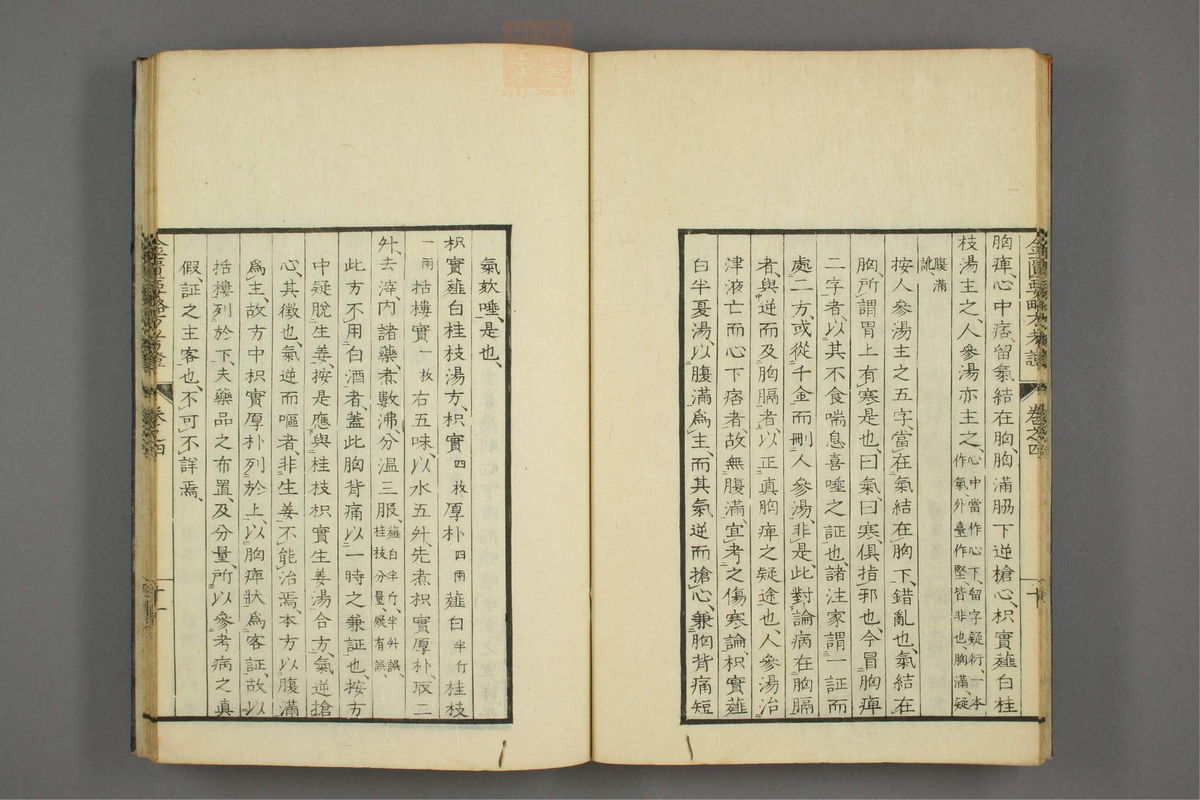 胸痺、心中痞留氣結在胸、胸滿脇下逆槍心、枳實薤白桂
枝湯主之、人參湯亦主之、心中當作心下、留字疑衍、一本作氣外臺作堅、皆非也、胸滿、疑
腹滿訛
按人參湯主之五字、當在氣結在胸下、錯亂也、氣結在
胸、所謂胃上有寒是也、曰氣、曰寒、俱指邪也、今冒胸痺
二字者、以其不食喘息喜唾之証也、諸注家謂一証而
處二方、或從千金而刪人參湯、非是、此對論病在胸膈
者、與逆而及胸膈者、以正真胸痺之疑途也、人參湯治
津液亡而心下痞者、故無腹滿、宜考之傷寒論、枳實薤
白半夏湯、以腹滿爲主、而其氣逆而搶心、兼胸背痛短
金匱要略方考證
卷之四
十
氣欬唾、是也、
枳實薤白桂枝湯方、枳實四枚厚朴四兩薤白半斤桂枝
一兩栝樓實一枚右五味、以水五升、先煮枳實厚朴、取二
升、去滓、內諸藥、煮數沸、分溫三服、薤白半斤、半升誤、桂枝分量、疑有誤、
此方不用白酒者、蓋此胸背痛以一時之兼証也、按方
中疑脫生姜、按是應與桂枝枳實生姜湯合方、氣逆搶
心、其徵也、氣逆而嘔者、非生姜不能治焉、本方以腹滿
爲主、故方中枳實厚朴列於上、以胸痺狀爲客証、故以
栝樓列於下、夫藥品之布置、及分量、所以參考病之真
假、証之主客也、不可不詳焉、
金匱要略方考證
卷之四
十一
zysj.com.cn